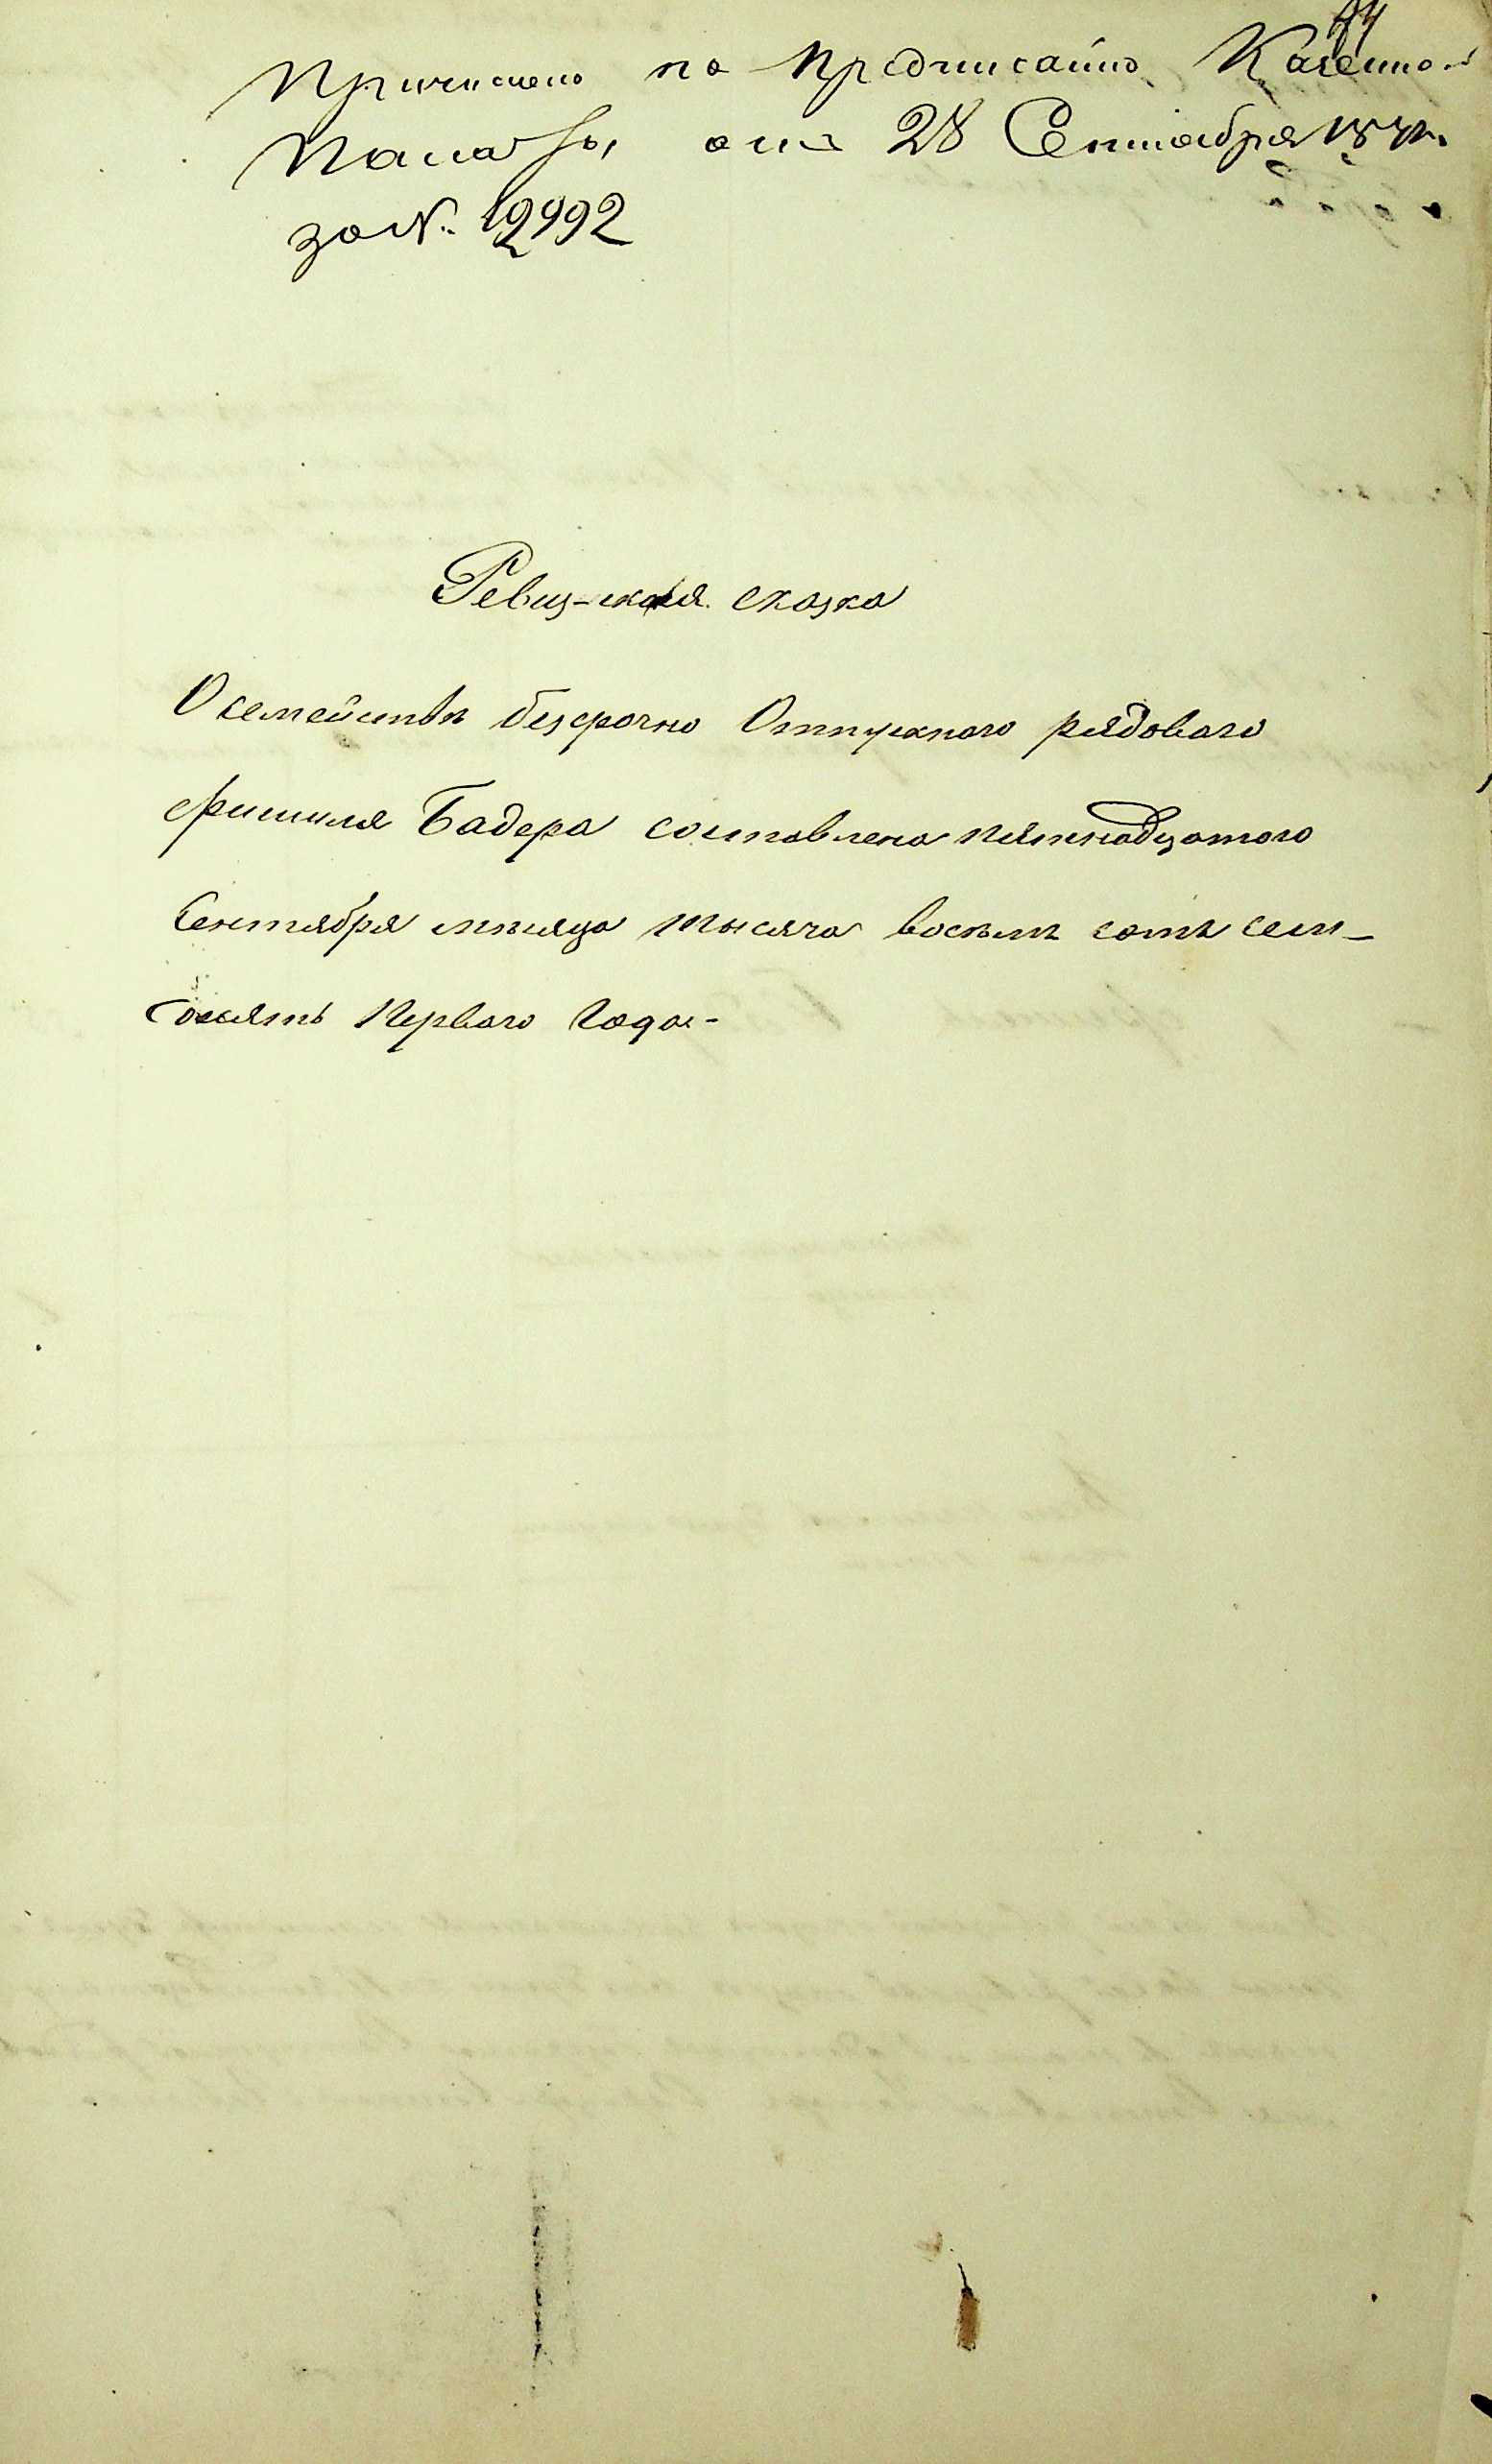 44
Причислено по предписанию Казенной
Палаты, отъ 28 Сентября 1871 г.
за №. 12992
Ревизская сказка
О семействѣ безсрочно Отпускного рядоваго
Фишиля Бадера составлена пятнадцатого
Сентября мѣсяца тысяча восемь сотъ сем-
десятъ Перваго Года-